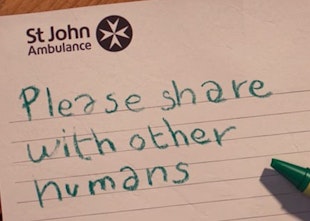 St John
Ambulance
Please share
with other
humans